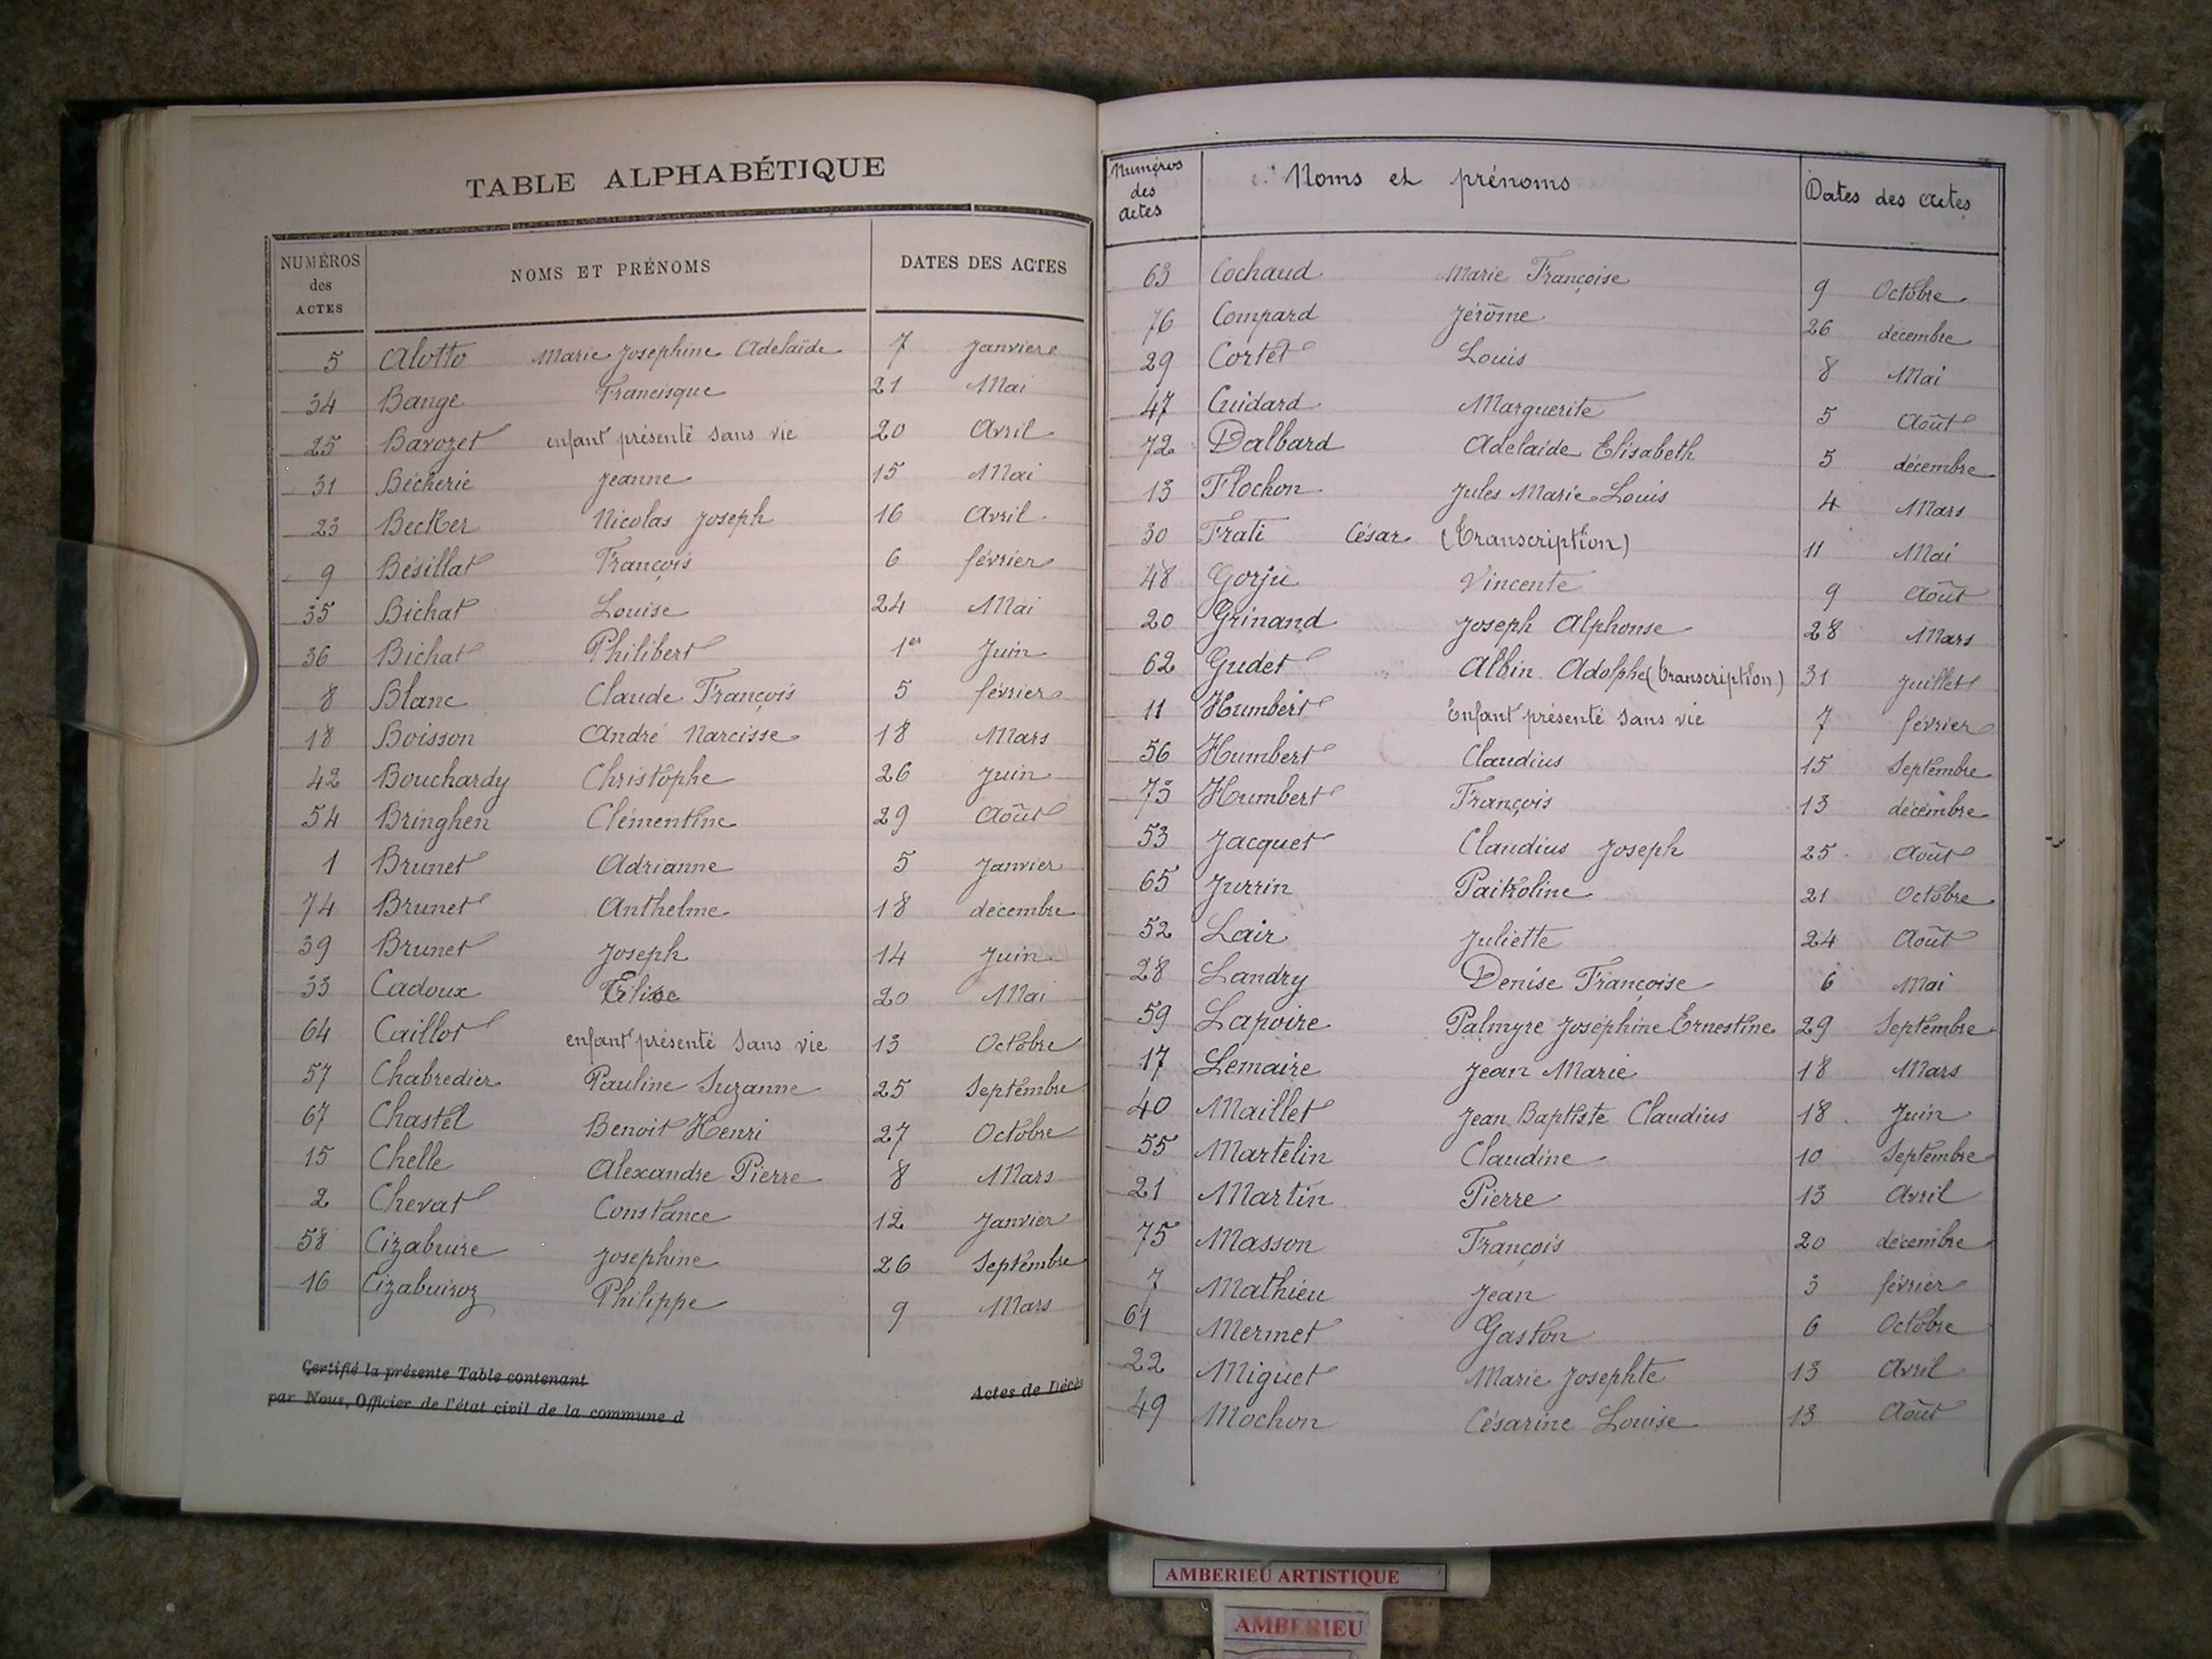 TABLE ALPHABÉTIQUE
NUMÉROS des ACTES NOMS ET PRÉNOMS DATES DES ACTES
5 Alotto Marie Josephine Adelaïde 7 Janvier
34 Bange Francisque 21 Mai
25 Bavozet enfant présenté sans vie 20 Avril
31 Bécherie Jeanne 15 Mai
23 Becker Nicolas Joseph 16 Avril
9 Bésillat François 6 février
35 Bichat Louise 24 Mai
36 Bichat Philibert 1er Juin
8 Blanc Claude François 5 février
18 Boisson André Narcisse 18 Mars
42 Bouchardy Christophe 26 Juin
54 Bringhen Clémentine 29 Août
1 Brunet Adrianne 5 Janvier
74 Brunet Anthelme 18 décembre
39 Brunet Joseph 14 Juin
33 Cadoux 20 Mai
64 Caillot enfant présenté sans vie 13 Octobre
57 Chabredier Pauline Suzanne 25 Septembre
67 Chastel Benoit Henri 27 Octobre
15 Chelle Alexandre Pierre 8 Mars
2 Chevat Constance 12 Janvier
58 Cizabuire Josephine 26 Septembre
16 Cizabuiroz Philippe 9 Mars
Certifié la présente Table contenant Actes de Décès
par Nous, Officier de l'état civil de la commune d
Numéros des actes Noms et prénoms Dates des actes
63 Cochaud Marie Françoise 9 Octobre
76 Compard Jérôme 26 décembre
29 Cortet Louis 8 Mai
47 Cuidard Marguerite 5 Août
72 Dalbard Adelaide Elisabeth 5 décembre
13 Flochon Jules Marie Louis 4 Mars
30 Frati César (transcription) 11 Mai
48 Gorju Vincente 9 Août
20 Grinand Joseph Alphonse 28 Mars
62 Gudet Albin Adolphe (transcription) 31 Juillet
11 Humbert Enfant présenté sans vie 7 février
56 Humbert Claudius 15 Septembre
73 Humbert François 13 décembre
53 Jacquet Claudius Joseph 25 Août
65 Jurrin 21 Octobre
52 Lair Juliette 24 Août
28 Landry Denise Françoise 6 Mai
59 Lapoire Palmyre Joséphine Ernestine 29 Septembre
17 Lemaire Jean Marie 18 Mars
40 Maillet Jean Baptiste Claudius 18 Juin
55 Martelin Claudine 10 Septembre
21 Martin Pierre 13 Avril
75 Masson François 20 décembre
7 Mathieu Jean 3 février
61 Mermet Gaston 6 Octobre
22 Miguet Marie Josephte 13 Avril
49 Mochon Césarine Louise 13 Août
AMBERIEU ARTISTIQUE
AMBERIEU